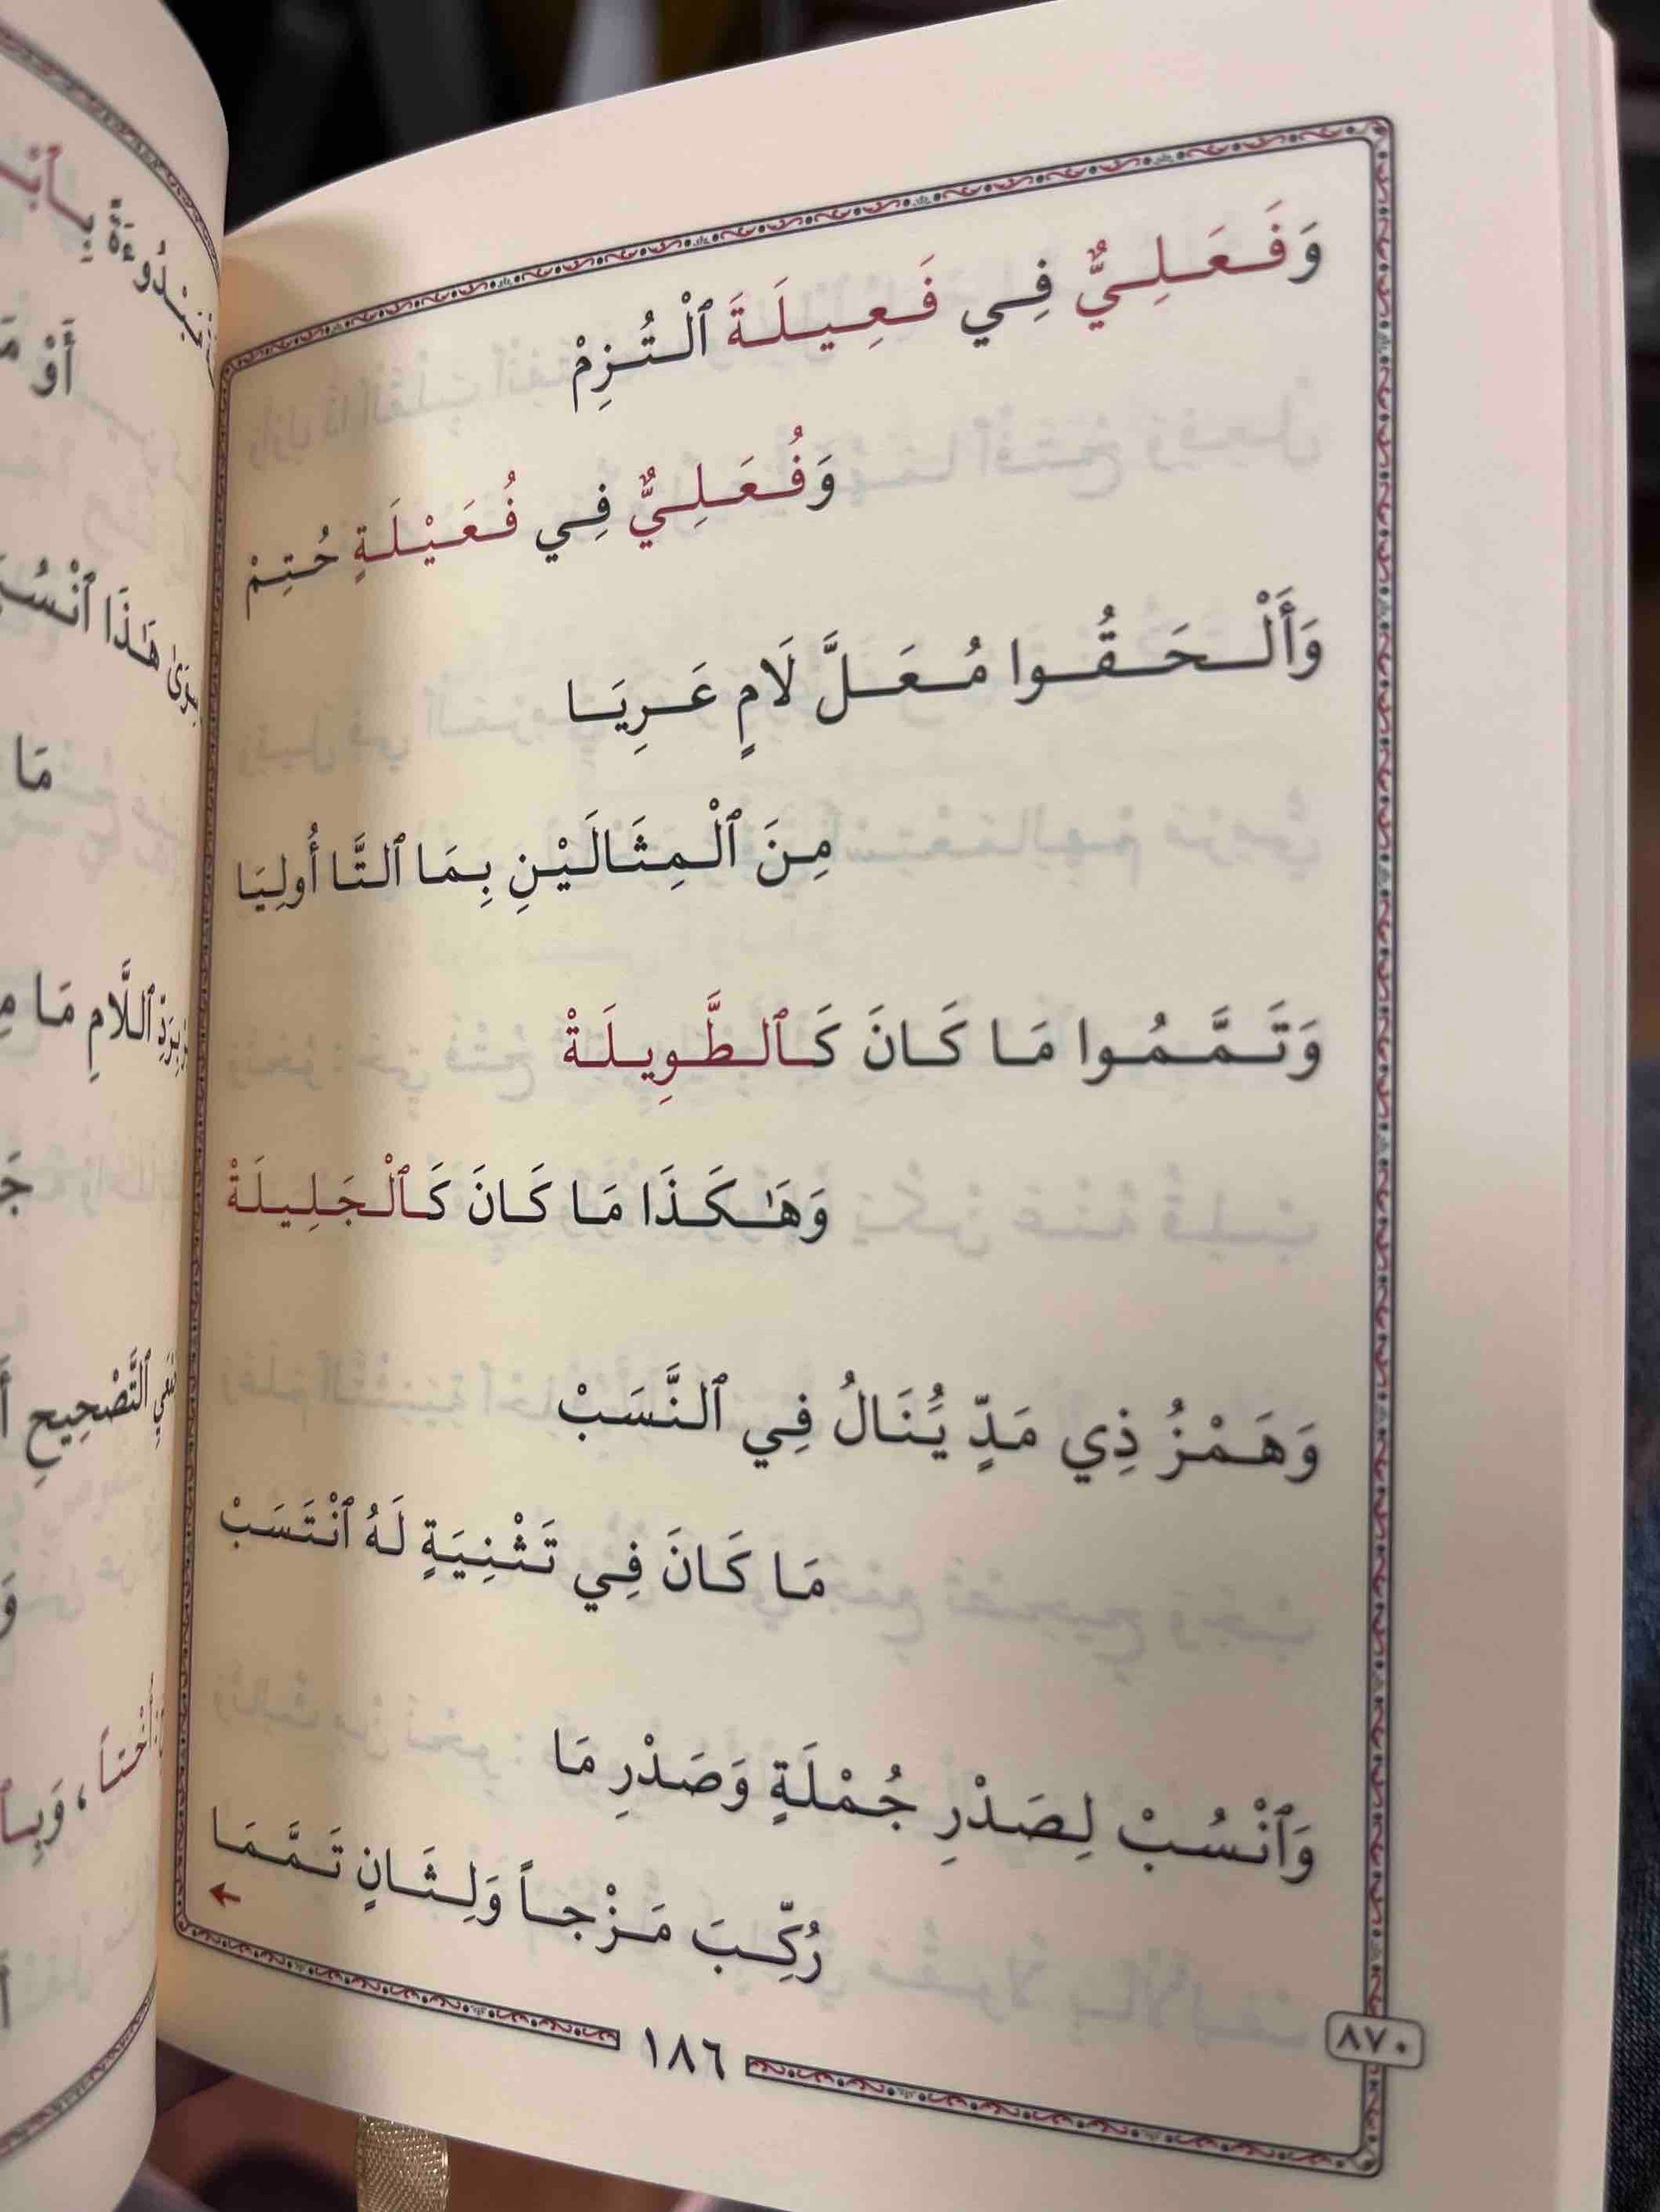 وَفَعَلِيٌّ فِي فَعِيلَةَ ٱلْتُزِمْ
وَفُعَلِيٌّ فِي فُعَيْلَةٍ حُتِمْ
وَأَلْحَقُوا مُعَلَّ لَامٍ عَرِيَا
مِنَ ٱلْمِثَالَيْنِ بِمَا ٱلتَّا أُولِيَا
وَتَمَّمُوا مَا كَانَ كَٱلطَّوِيلَةْ
وَهَٰكَذَا مَا كَانَ كَٱلْجَلِيلَةْ
وَهَمْزُ ذِي مَدٍّ يُنَالُ فِي ٱلنَّسَبْ
مَا كَانَ فِي تَثْنِيَةٍ لَهُ ٱنْتَسَبْ
وَٱنْسُبْ لِصَدْرِ جُمْلَةٍ وَصَدْرِ مَا
رُكِّبَ مَزْجاً وَلِثَانٍ تَمَّمَا
٨٧٠
١٨٦
أَوْ
هَٰذَا ٱنْسُبْ
مَا
ٱللَّامِ مَا
ٱلتَّصْحِيحِ